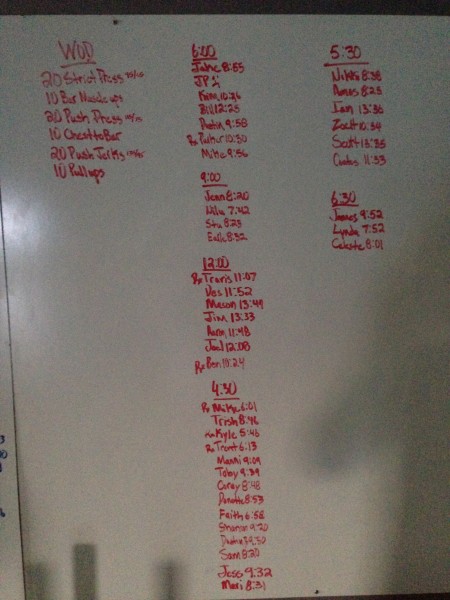 WOD
20 Strict Press
10 Bar Muscle ups
20 Push Press
10 Chest to Bar
20 Push Jerks
10 Pull ups
6:00
Jake 8:55
JP
Kim 10:26
Bill 12:25
9:58
Rx Parker 10:30
Mike 9:56
9:00
Jenn 8:20
7:42
Stu 8:23
8:32
12:00
Rx Travis 11:07
Des 11:52
Mason 13:49
Jim 13:33
Aaron 11:48
Joel 12:08
Rx Ben 10:24
4:30
Rx Mike 6:01
Trish 8:46
Kyle 5:46
Rx Trent 6:13
Manni 9:09
Toby 9:39
Corey 8:48
Donette 8:53
Faith 6:58
Sharron 9:20
9:50
Sam 8:20
Jess 9:32
Mari 8:31
5:30
Nikki 8:38
Amos 8:23
Ian 13:36
Zach 10:34
Scott 13:35
Carlos 11:33
6:30
James 9:52
Lynda 7:52
Celeste 8:01